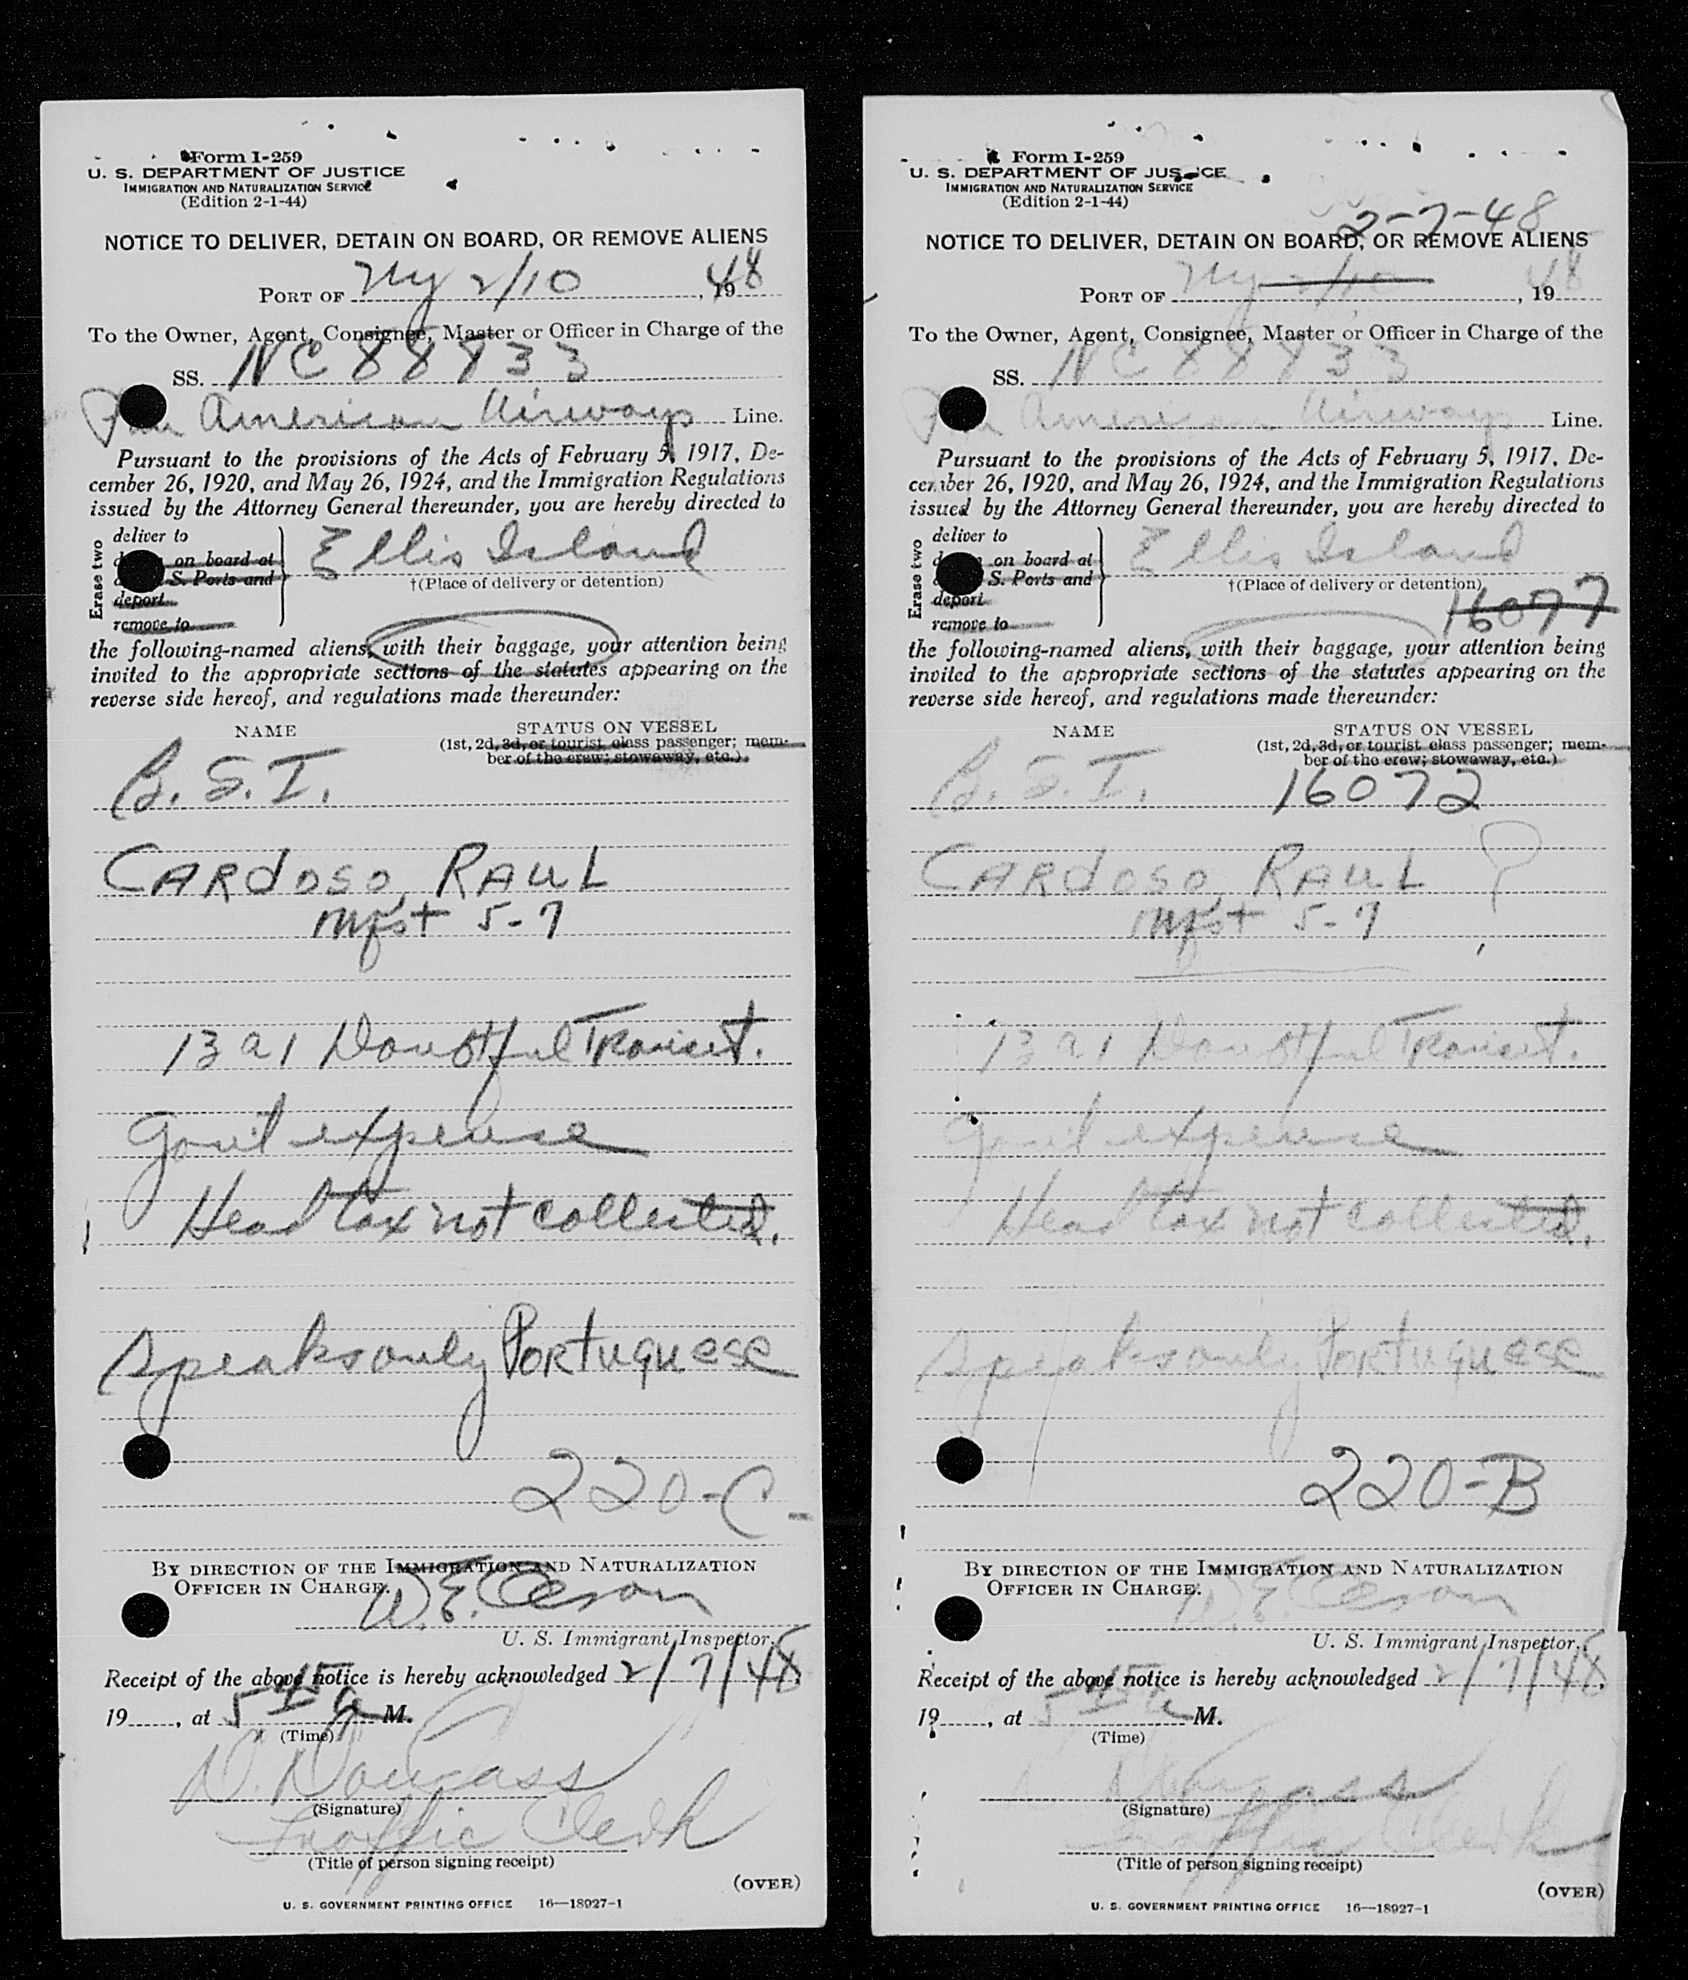 Form I-259
U. S. DEPARTMENT OF JUSTICE
IMMIGRATION AND NATURALIZATION SERVICE
(Edition 2-1-44)
NOTICE TO DELIVER, DETAIN ON BOARD, OR REMOVE ALIENS
PORT OF Ny 2/10, 1948
To the Owner, Agent, Consignee, Master or Officer in Charge of the
SS. NC 88833
American Airways Line.
Pursuant to the provisions of the Acts of February 5, 1917, De-
cember 26, 1920, and May 26, 1924, and the Immigration Regulations
issued by the Attorney General thereunder, you are hereby directed to
Erase two
deliver to
on board at
S. Ports and
deport
remove to
Ellis Island
†(Place of delivery or detention)
the following-named aliens, with their baggage, your attention being
invited to the appropriate sections of the statutes appearing on the
reverse side hereof, and regulations made thereunder:
NAME STATUS ON VESSEL
(1st, 2d, 3d, or tourist class passenger; mem-
ber of the crew; stowaway, etc.)
B. S. I.
CARDOSO, RAUL
Mfst 5-7
13 a 1 Doubtful Transit.
Gov't expense
Head tax not collected.
Speaks only Portuguese
220-C
BY DIRECTION OF THE IMMIGRATION AND NATURALIZATION
OFFICER IN CHARGE.
W. E.
U. S. Immigrant Inspector.
Receipt of the above notice is hereby acknowledged 2/7/48,
19, at 5 15 a M.
(Time)
D.
(Signature)
Traffic Clerk
(Title of person signing receipt)
(OVER)
U. S. GOVERNMENT PRINTING OFFICE 16—18927-1
Form I-259
U. S. DEPARTMENT OF JUSTICE
IMMIGRATION AND NATURALIZATION SERVICE
(Edition 2-1-44)
2-7-48
NOTICE TO DELIVER, DETAIN ON BOARD, OR REMOVE ALIENS
PORT OF Ny 2/10, 1948
To the Owner, Agent, Consignee, Master or Officer in Charge of the
SS. NC 88833
American Airways Line.
Pursuant to the provisions of the Acts of February 5, 1917, De-
cember 26, 1920, and May 26, 1924, and the Immigration Regulations
issued by the Attorney General thereunder, you are hereby directed to
Erase two
deliver to
on board at
S. Ports and
deport
remove to
Ellis Island
†(Place of delivery or detention)
16077
the following-named aliens, with their baggage, your attention being
invited to the appropriate sections of the statutes appearing on the
reverse side hereof, and regulations made thereunder:
NAME STATUS ON VESSEL
(1st, 2d, 3d, or tourist class passenger; mem-
ber of the crew; stowaway, etc.)
B. S. I. 16072
CARDOSO, RAUL ?
Mfst 5-7
13 a 1 Doubtful Transit.
Gov't expense
Head tax not collected.
Speaks only Portuguese
220-B
BY DIRECTION OF THE IMMIGRATION AND NATURALIZATION
OFFICER IN CHARGE.
W. E.
U. S. Immigrant Inspector.
Receipt of the above notice is hereby acknowledged 2/7/48,
19, at 5 15 a M.
(Time)
(Signature)
Traffic Clerk
(Title of person signing receipt)
(OVER)
U. S. GOVERNMENT PRINTING OFFICE 16—18927-1